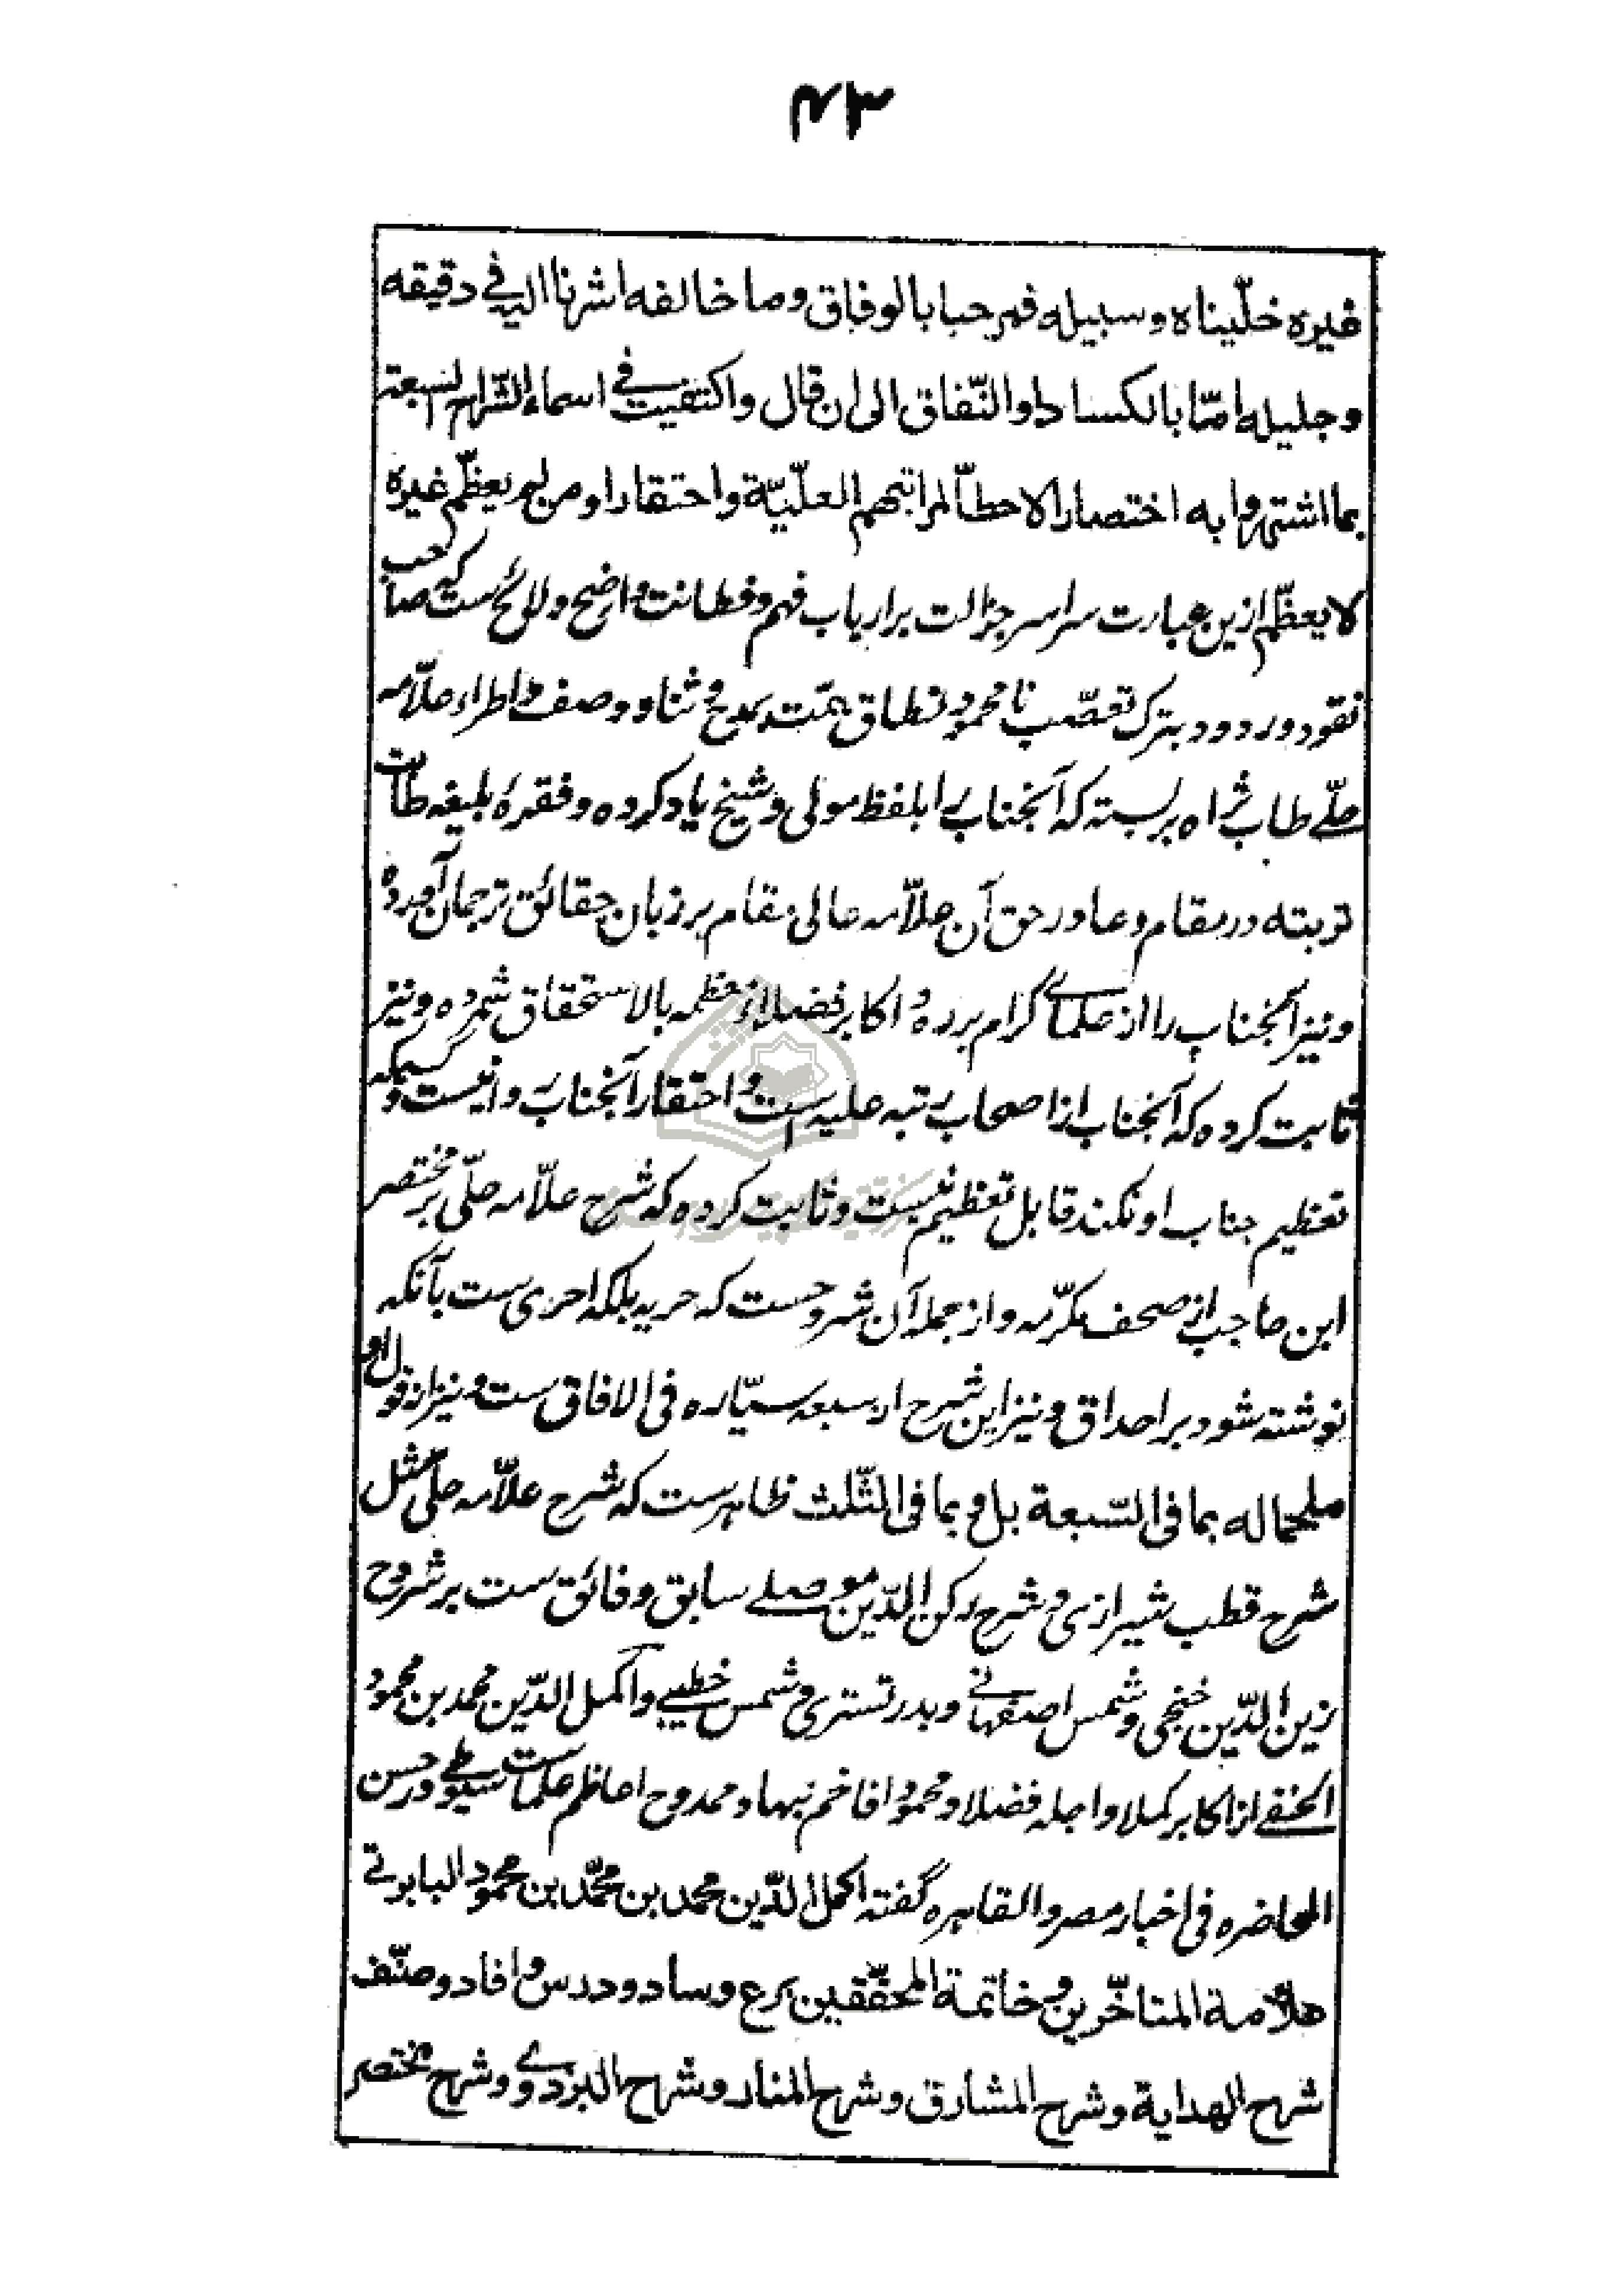 غیره خلّیناه وسبیله فمرحبا بالوفاق وما خالفه اشرنا الیه فی دقیقه
وجلیله امّا بالکساد او النّفاق الی ان قال واکتفیت فی اسماء الشّراح السبعة
بما اشتهروا به اختصارا لا حطّا لمراتبهم العلّیّة واحتقارا ومن لم یعظّم غیره
لا یعظّم ازین عبارت سراسر جزالت بر ارباب فهم وفطانت واضح ولائح ست که صاحب
نقود وردود بترک تعصّب نامحمود نطاق همّت بمدح وثنا ووصف واطراء علّامه
حلّی طاب ثراه بر بسته که آنجناب را بلفظ مولی وشیخ یاد کرده وفقرهٔ بلیغه طابت
تربته در مقام دعا در حق آن علّامه عالی مقام بر زبان حقائق ترجمان آورده
ونیز آنجناب را از علمای کرام برده و اکابر فضلا از عظمه بالاستحقاق شمرده ونیز
ثابت کرده که آنجناب از اصحاب رتبه علیه است و احتقار آنجناب روا نیست وکسیکه
تعظیم جناب او نکند قابل تعظیم نیست وثابت کرده که شرح علّامه حلّی بر مختصر
ابن حاجب از صحف مکرّمه واز جمله آن شروحست که حریه بلکه احری ست بآنکه
نوشته شود بر احداق ونیز این شرح از سبعه سیّاره فی الافاق ست ونیز از قول او
ملیحما له بما فی السّبعة بل و بما فی الثّلث ظاهرست که شرح علّامه حلّی مثل
شرح قطب شیرازی و شرح رکن الدّین موصلی سابق وفائق ست بر شروح
زین الدّین خنجی وشمس اصفهانی وبدر تستری وشمس خطیبی واکمل الدّین محمد بن محمود
الحنفی از اکابر کملا واجله فضلا ومحمود افاخم نبها وممدوح اعاظم علماست سیوطی در حسن
المحاضره فی اخبار مصر والقاهره گفته اکمل الدّین محمد بن محمّد بن محمود البابرتی
علّامة المتاخّرین وخاتمة المحقّقین برع وساد ودرس وافاد وصنّف
شرح الهدایة وشرح المشارق وشرح المنار وشرح البزدوی وشرح مختصر